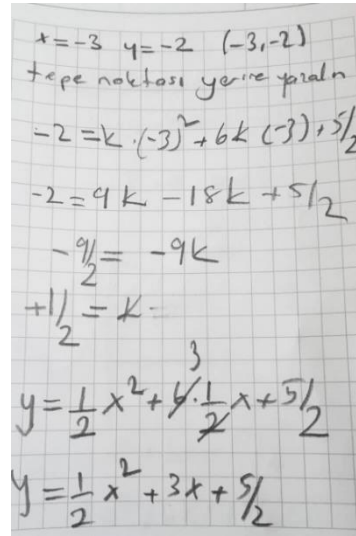 x=-3 y=-2 (-3,-2)
tepe noktası yerine yazalım
-2=k.(-3)²+6k(-3)+5/2
-2=9k-18k+5/2
-9/2=-9k
+1/2=k
3
y=1/2x²+6.1/2x+5/2
y=1/2x²+3x+5/2